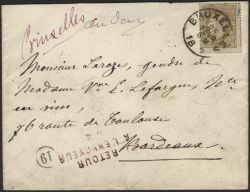 Bruxelles
BRUXELLES
Monsieur Laroze, gendre de
Madame Vve L. Lafargue, Nte
en vins,
76 route de Toulouse
Bordeaux
RETOUR
A L'ENVOYEUR
61